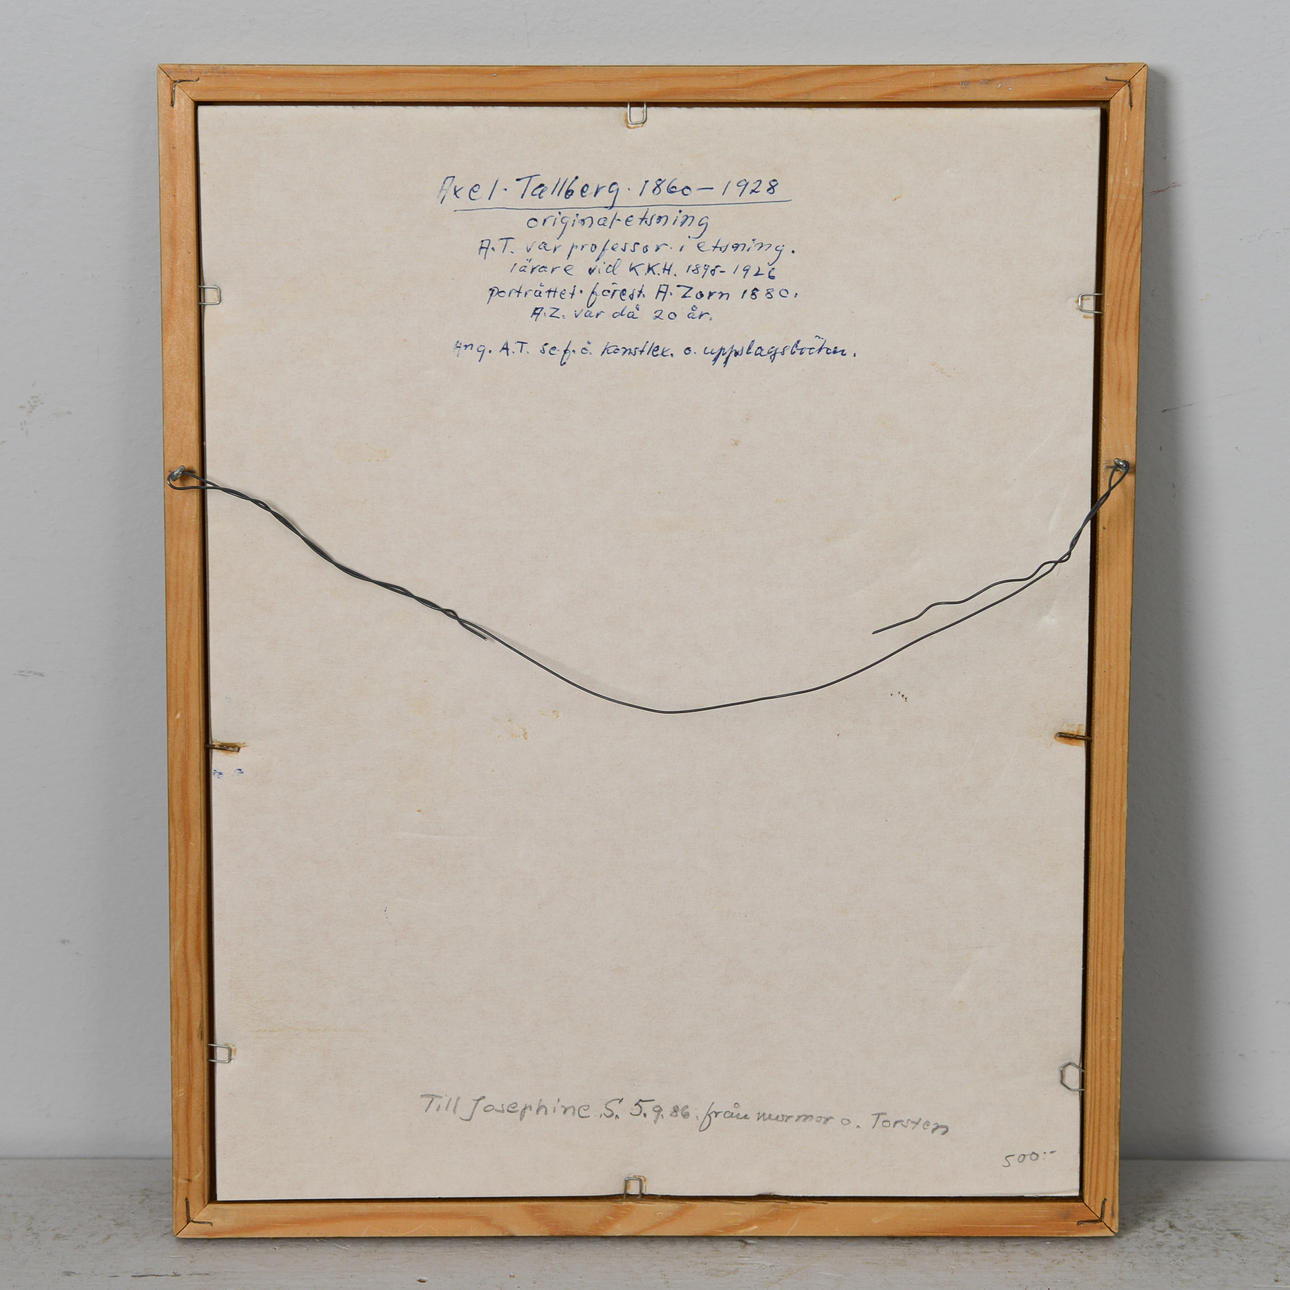 Axel Tallberg. 1860–1928
original-etsning
A.T. var professor i etsning.
lärare vid KKH. 1895-1926
porträttet förest. A. Zorn 1880.
A.Z. var då 20 år.
Ang. A.T. se konstlex. o. uppslagsböcker.
Till Josephine S. 5.9.86. från mormor o. Torsten
500:-